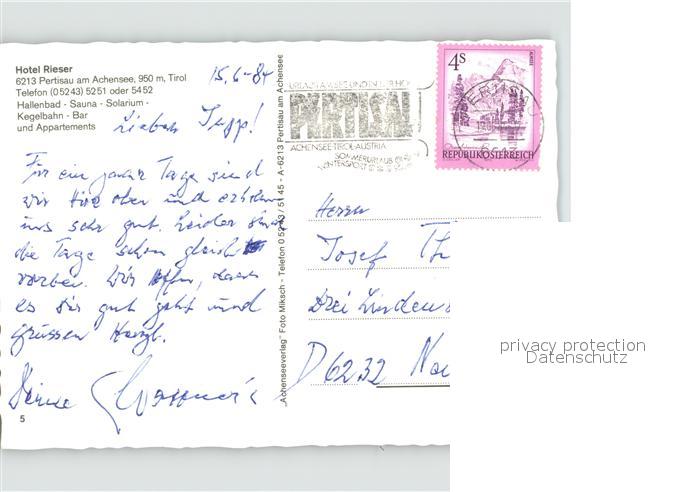 Hotel Rieser
6213 Pertisau am Achensee, 950 m, Tirol
Telefon (05243) 5251 oder 5452
Hallenbad - Sauna - Solarium -
Kegelbahn - Bar
und Appartements
15.6-84
Lieber Jupp!
Für ein paar Tage sind
wir hier oben und erholen
uns sehr gut. Leider sind
die Tage schon gleich
vorbei. Wir hoffen, dass
es Dir gut geht und
grüssen Herzl.
Deine
5
"Achenseeverlag" Foto Miksch - Telefon 05243/5145 - A-6213 Pertisau am Achensee
PERTISAU
ACHENSEE-TIROL-AUSTRIA
SOMMERURLAUB
WINTERSPORT
4S
ACHENSEE
REPUBLIK ÖSTERREICH
6213
Herrn
Josef Th
Drei Linden
D 6232 Neu
privacy protection
Datenschutz